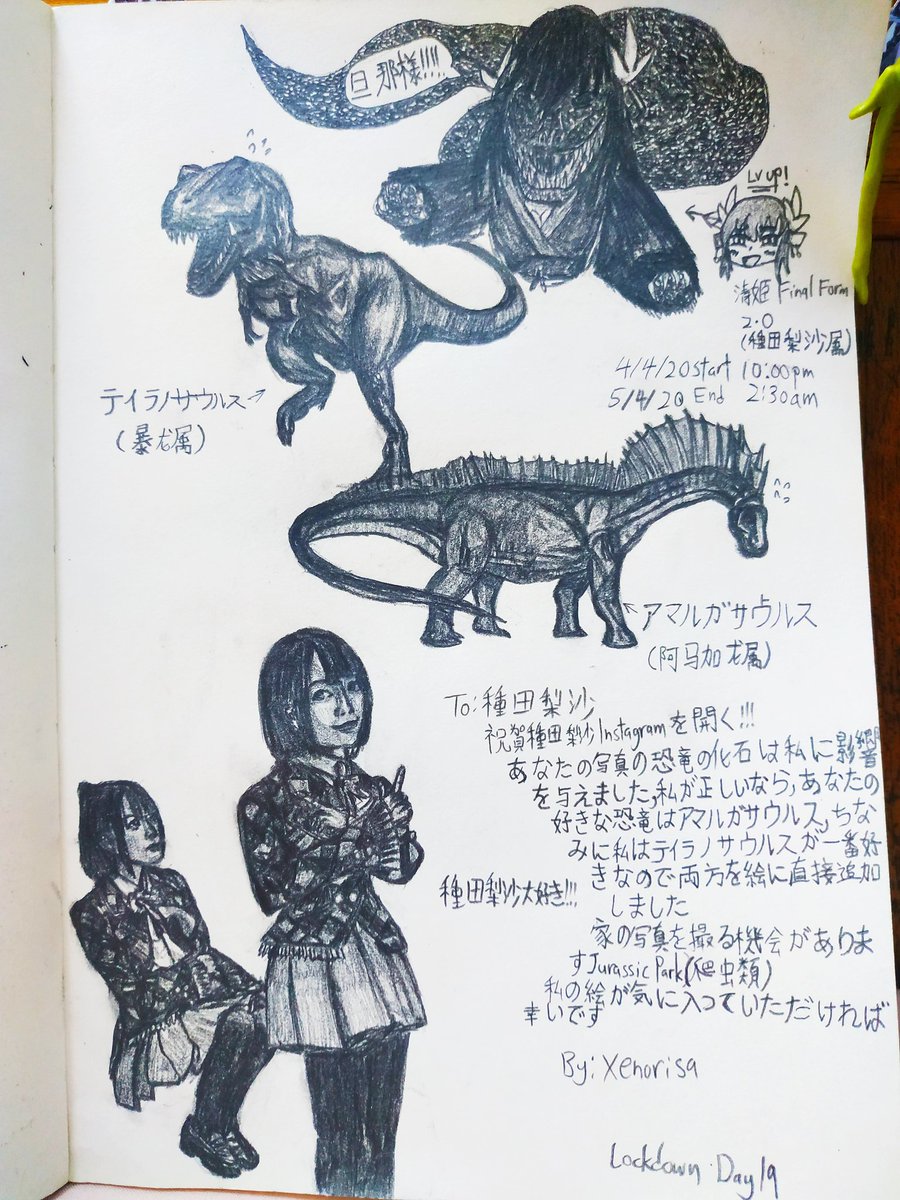 旦那様!!!!
Lv up!
清姫 Final Form
2.0
(種田梨沙属)
4/4/20 start 10:00pm
5/4/20 End 2:30am
テイラノサウルス→
(暴龙属)
アマルガサウルス
(阿马加龙属)
To:種田梨沙
祝賀種田梨沙Instagramを開く!!!
あなたの写真の恐竜の化石は私に影響
を与えました,私が正しいなら,あなたの
好きな恐竜はアマルガサウルス,ちな
みに私はテイラノサウルスが一番好
きなので両方を絵に直接追加
しました
種田梨沙大好き!!!
家の写真を撮る機会がありま
すJurassic Park(爬虫類)
私の絵が気に入っていただければ
幸いです
By:Xenorisa
Lockdown Day 19